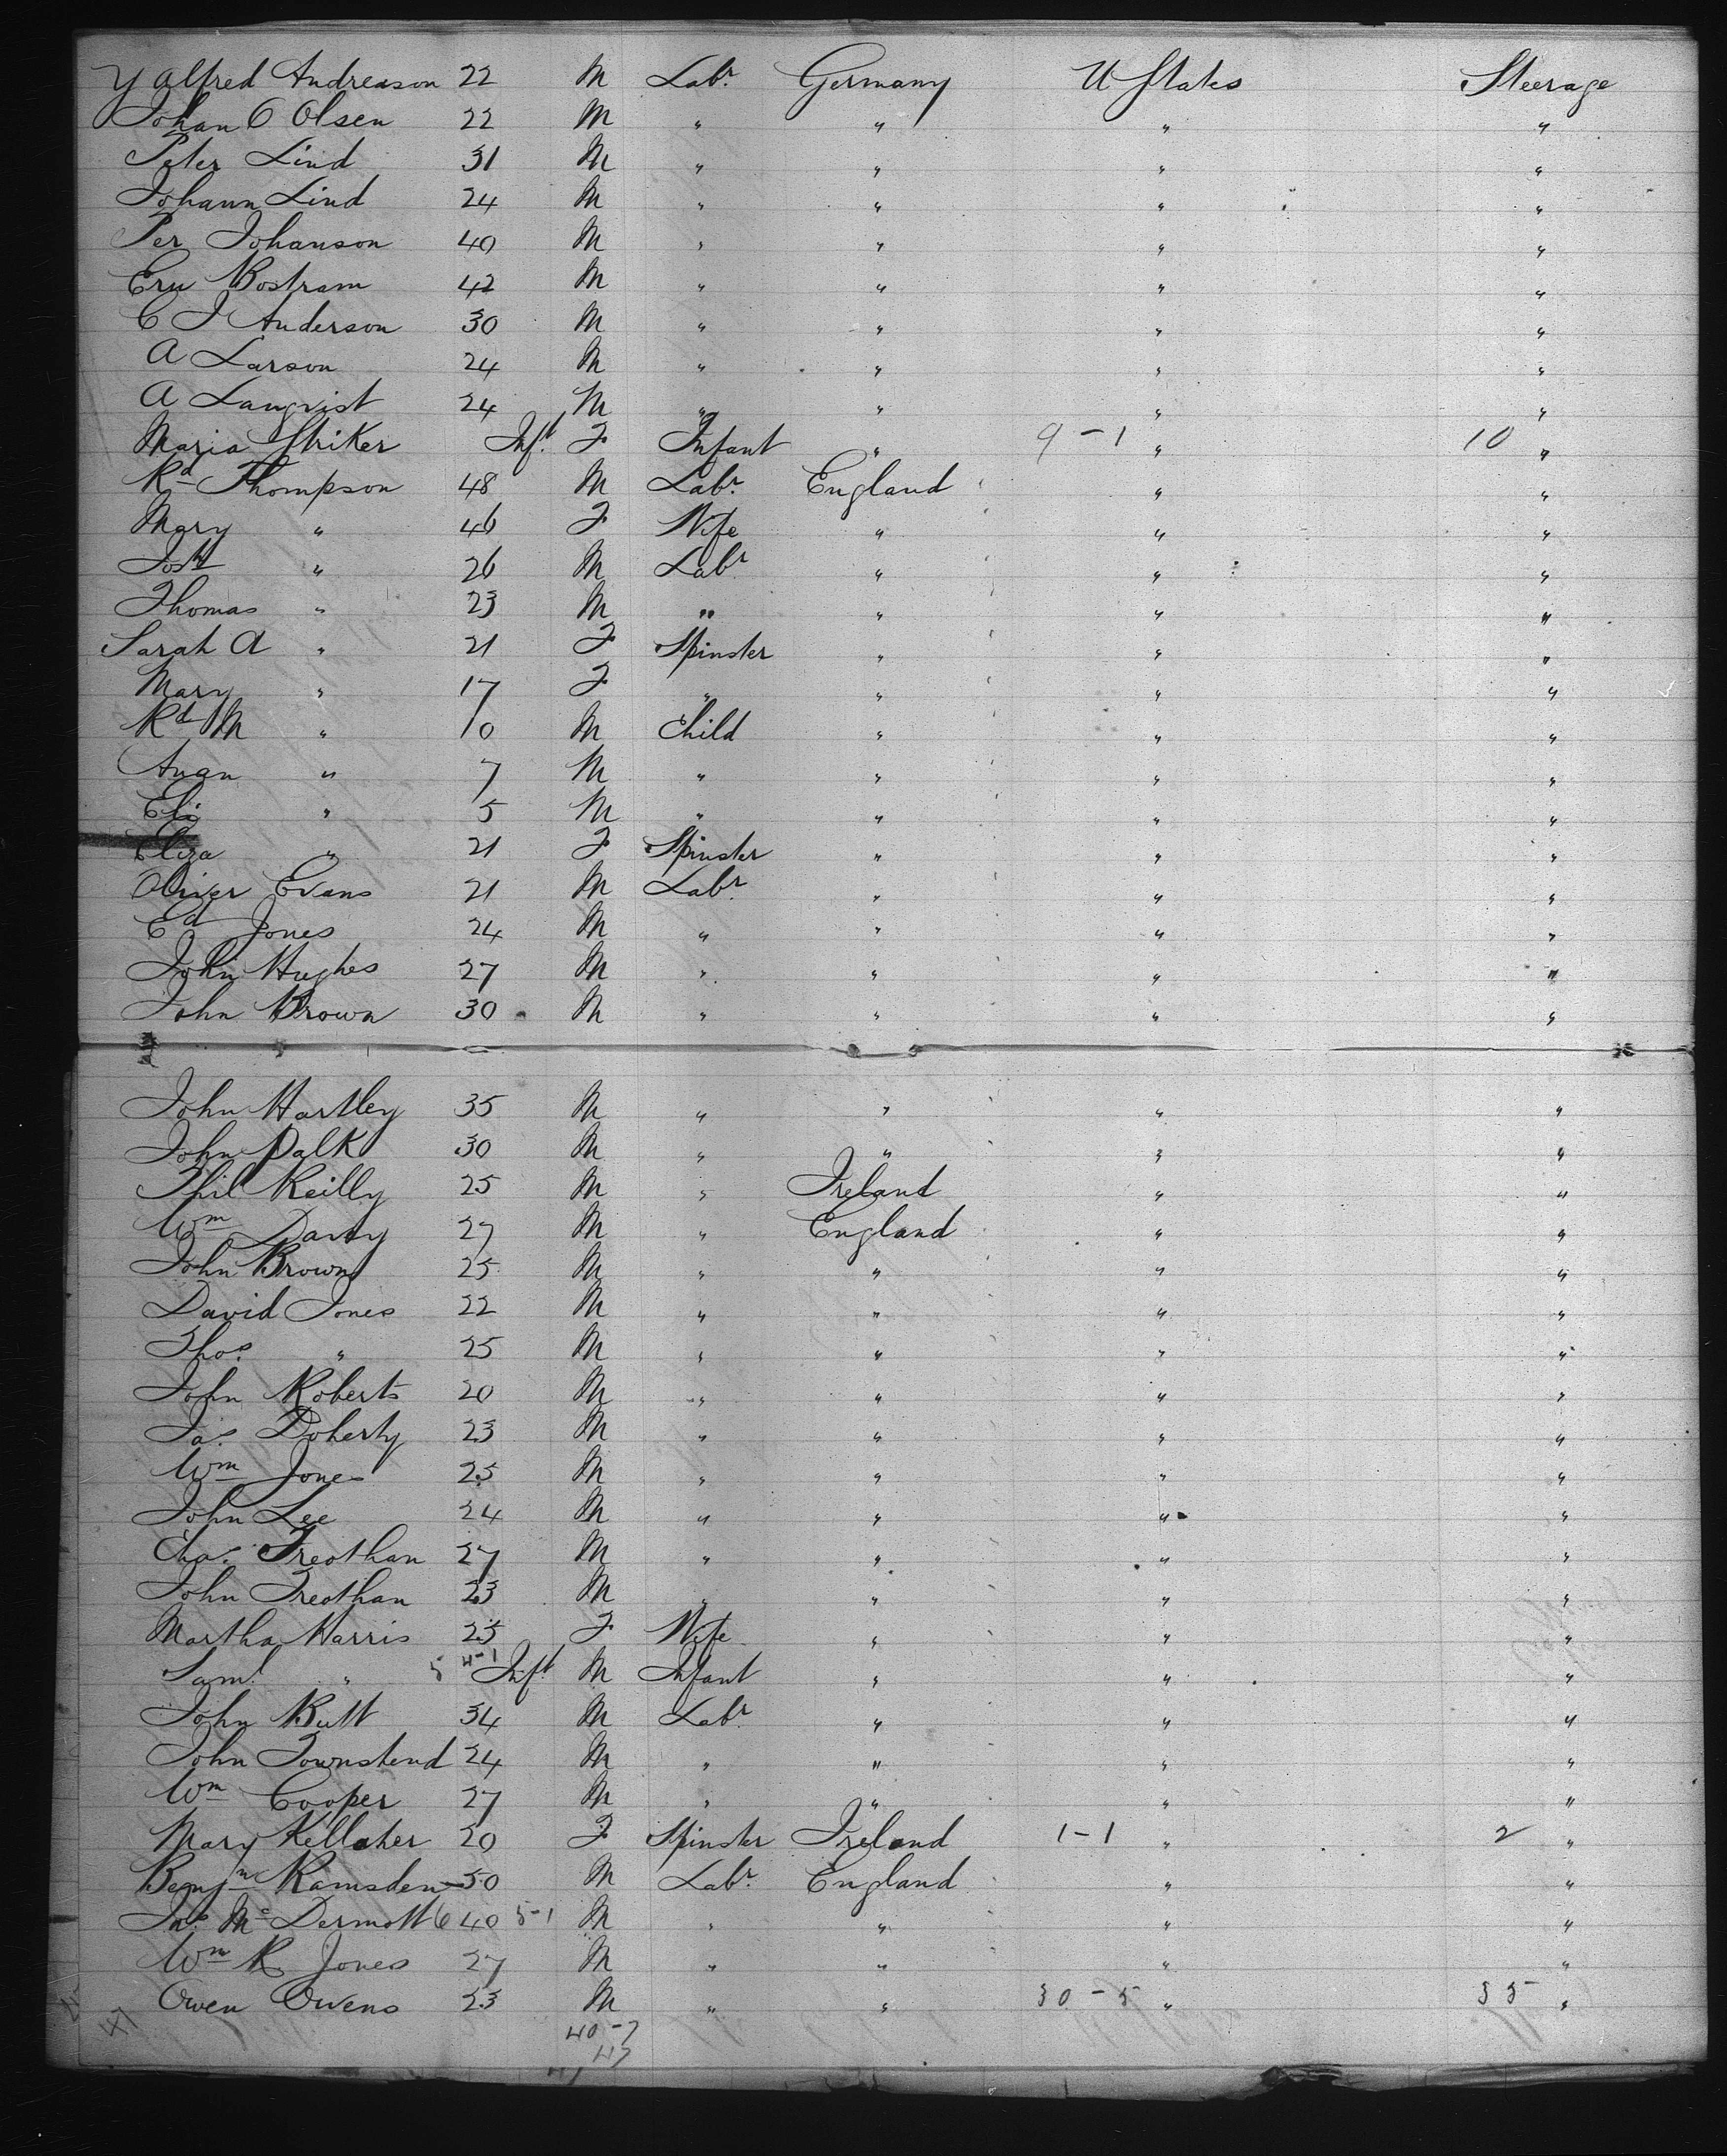 Y Alfred Andreason 22 M Labr. Germany U States Steerage
Johan O Olsen 22 M " " " "
Peter Lind 31 M " " " "
Johann Lind 24 M " " " "
Per Johanson 40 M " " " "
Eru Bostram 42 M " " " "
C J Anderson 30 M " " " "
A Larson 24 M " " " "
A Lanqvist 24 M " " " "
Maria Striker Inft. F Infant " 9-1 " 10 "
Rd Thompson 48 M Labr. England " "
Mary " 46 F Wife " " "
Josh " 26 M Labr " " "
Thomas " 23 M " " " "
Sarah A " 21 F Spinster " " "
Mary " 17 F " " " "
Rd M " 10 M Child " " "
" 7 M " " " "
Eli " 5 M " " " "
Eliza " 21 F Spinster " " "
Oliver Evans 21 M Labr. " " "
Ed Jones 24 M " " " "
John Hughes 27 M " " " "
John Brown 30 M " " " "
John Hartley 35 M " " " "
John Palk 30 M " " " "
Phil Reilly 25 M " Ireland " "
Wm Davey 27 M " England " "
John Brown 25 M " " " "
David Jones 22 M " " " "
Thos. " 25 M " " " "
John Roberts 20 M " " " "
Jas. Doherty 23 M " " " "
Wm Jones 25 M " " " "
John Lee 24 M " " " "
Chas. Treothan 27 M " " " "
John Treothan 23 M " " " "
Martha Harris 25 F Wife " " "
Saml. " 5 4-1 Inft. M Infant " " "
John Butt 34 M Labr " " "
John Townstend 24 M " " " "
Wm Cooper 27 M " " " "
Mary Kellaher 20 F Spinster Ireland 1-1 " 2 "
Benjn Ramsden 50 M Labr. England " "
Jas. Mc Dermott 6 40 5-1 M " " " "
Wm R Jones 27 M " " " "
Owen Owens 23 M " " 30-5 " 35 "
47 40-7
47